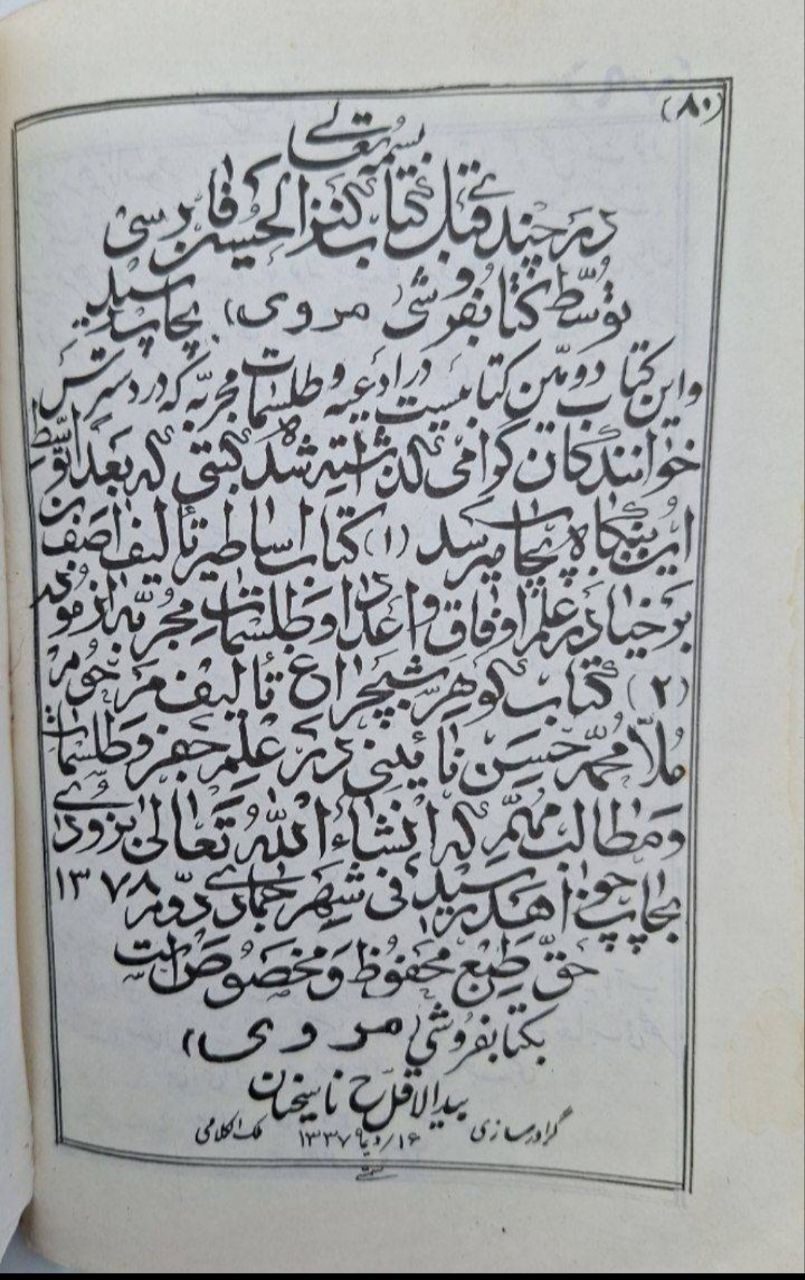 (۸۰)
بسمه تعالی
در چندی قبل کتاب کنز الحسین فارسی
توسط کتابفروشی (مروی) بچاپ رسید
و این کتاب دومین کتابیست در ادعیه و طلسمات مجربه که در دسترس
خوانندگان گرامی گذاشته شد کتبی که بعدا توسط
این بنگاه بچاپ میرسد (۱) کتاب اساطیر تألیف اصف بن
برخیا در علم اوفاق و اعداد و طلسمات مجربه ازموده
(۲) کتاب گوهر شبچراغ تألیف مرحوم
ملا محمد حسن نائینی در علم جفر و طلسمات
و مطالب مهم که انشاء الله تعالی بزودی
بچاپ خواهد رسید فی شهر جمادی دوم ۱۳۷۸
حق طبع محفوظ و مخصوص است
بکتابفروشی (مروی)
بید الاقل ح ناسیخیان
گراورسازی ۱۶/دیماه ۱۳۳۷ ملک الکلامی